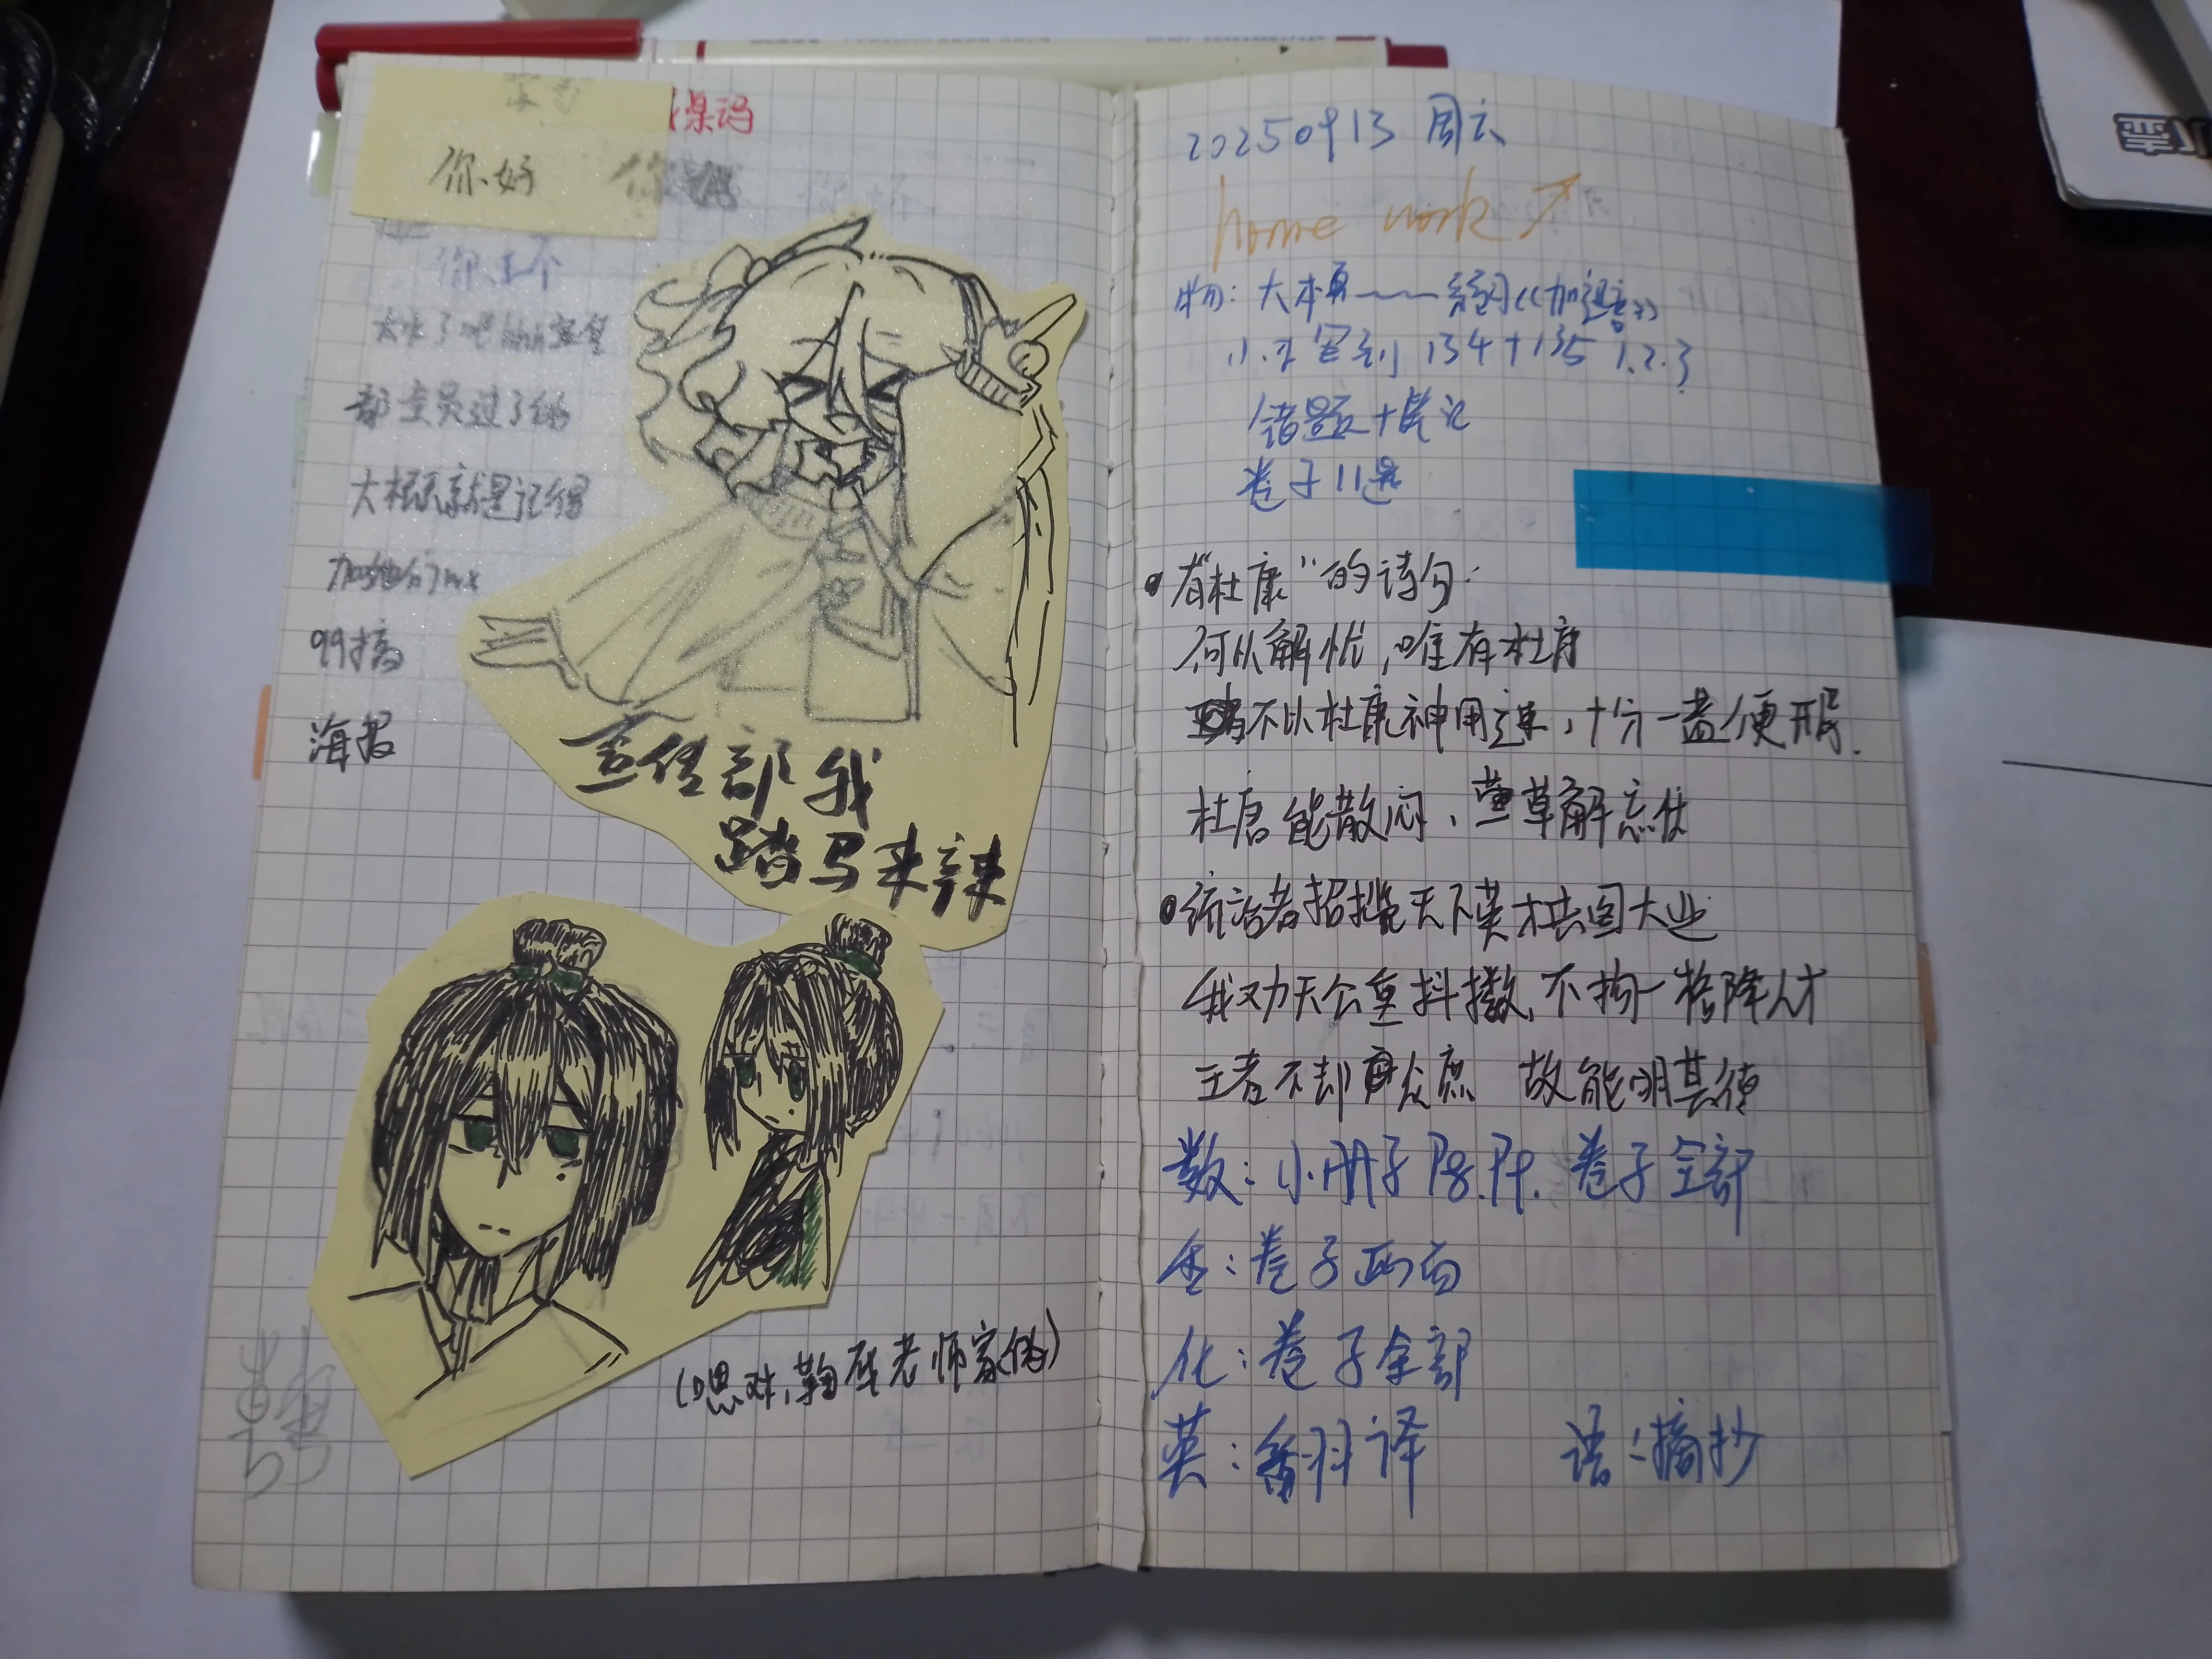 你好
部宣员过了的
大概就是记得
加他们的
99搞
海报
宣传部我
踏马来辣
(嗯对,鞠莘老师家的)
20250913 周六
home work
物: 大本 练习《加速度》
134+135 1.2.3
错题+笔记
卷子11题
有"杜康"的诗句:
何以解忧,唯有杜康
不以杜康神用速,十分一盏便开眉.
杜康能散闷,萱草解忘忧
统治者招揽天下英才共图大业
我劝天公重抖擞,不拘一格降人才
王者不却众庶 故能明其德
数: 小册子 P8.P9. 卷子全部
卷子两面
化: 卷子全部
英: 翻译 语: 摘抄